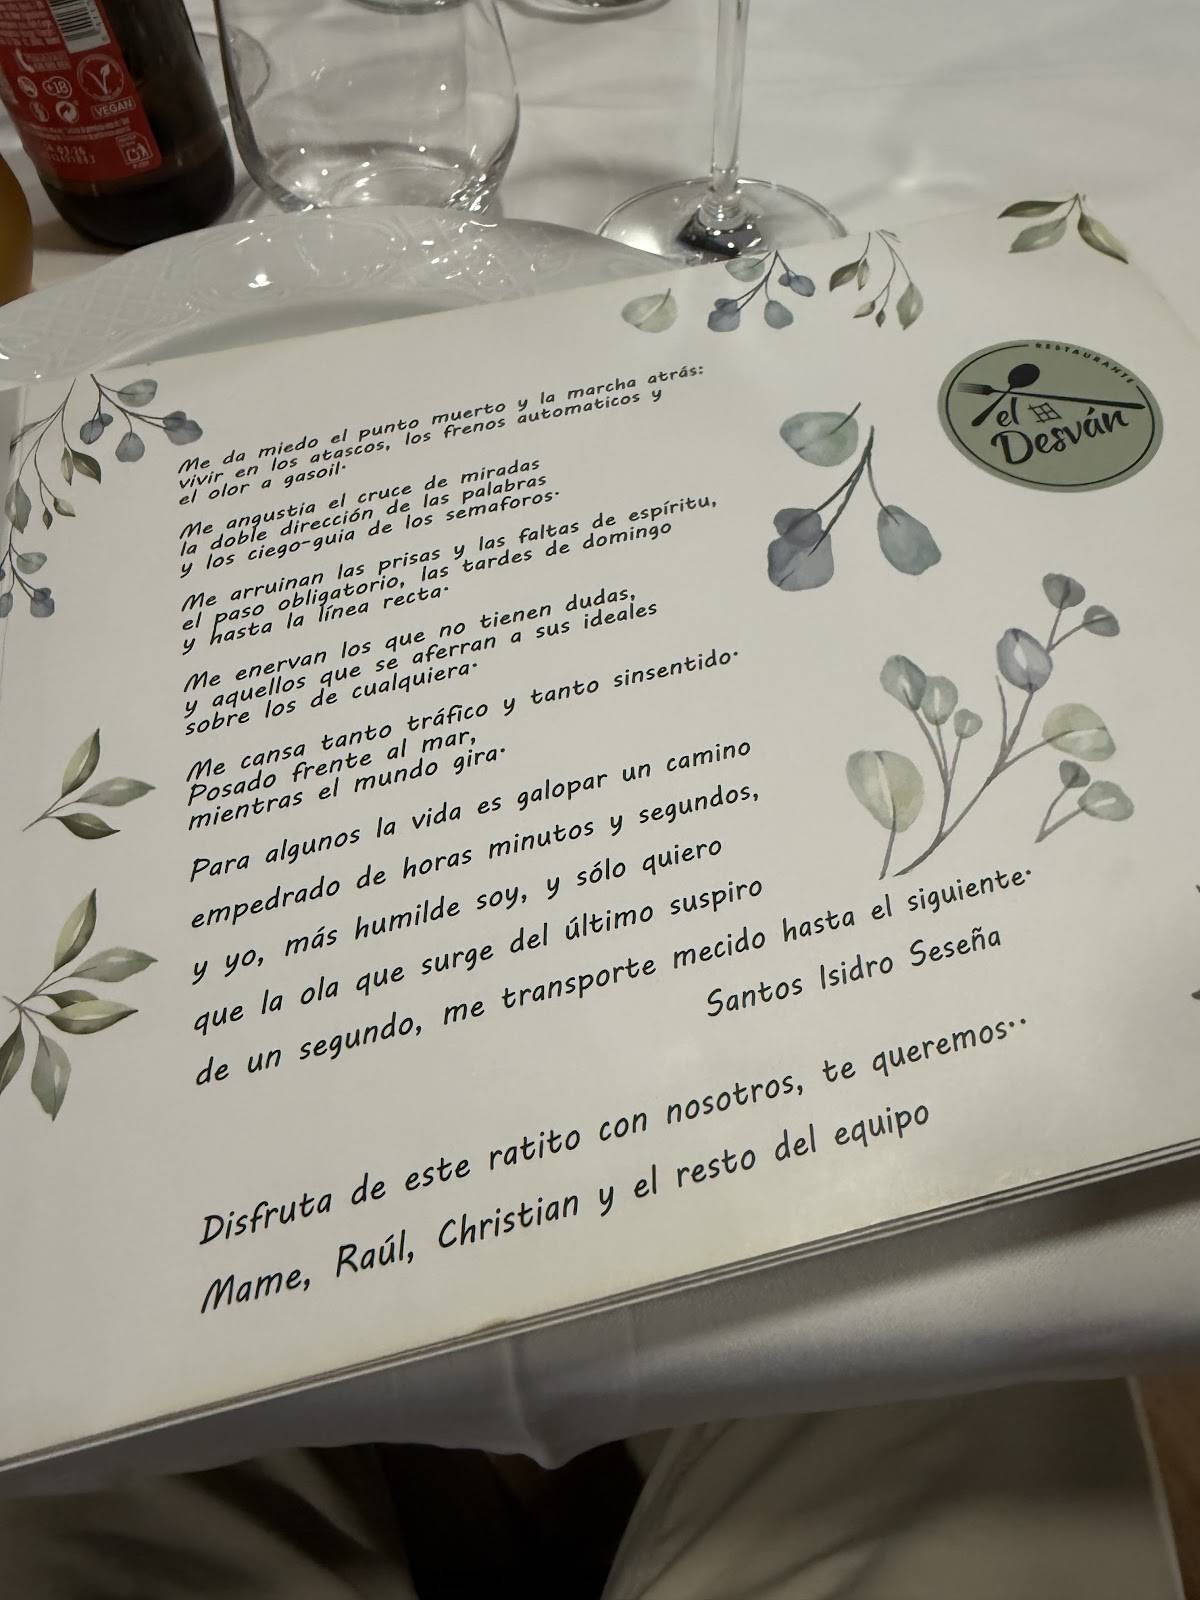 +18
VEGAN
RESTAURANTE
el
Desván
Me da miedo el punto muerto y la marcha atrás:
vivir en los atascos, los frenos automaticos y
el olor a gasoil.
Me angustia el cruce de miradas
la doble dirección de las palabras
y los ciego-guia de los semaforos.
Me arruinan las prisas y las faltas de espíritu,
el paso obligatorio, las tardes de domingo
y hasta la línea recta.
Me enervan los que no tienen dudas,
y aquellos que se aferran a sus ideales
sobre los de cualquiera.
Me cansa tanto tráfico y tanto sinsentido.
Posado frente al mar,
mientras el mundo gira.
Para algunos la vida es galopar un camino
empedrado de horas minutos y segundos,
y yo, más humilde soy, y sólo quiero
que la ola que surge del último suspiro
de un segundo, me transporte mecido hasta el siguiente.
Santos Isidro Seseña
Disfruta de este ratito con nosotros, te queremos..
Mame, Raúl, Christian y el resto del equipo